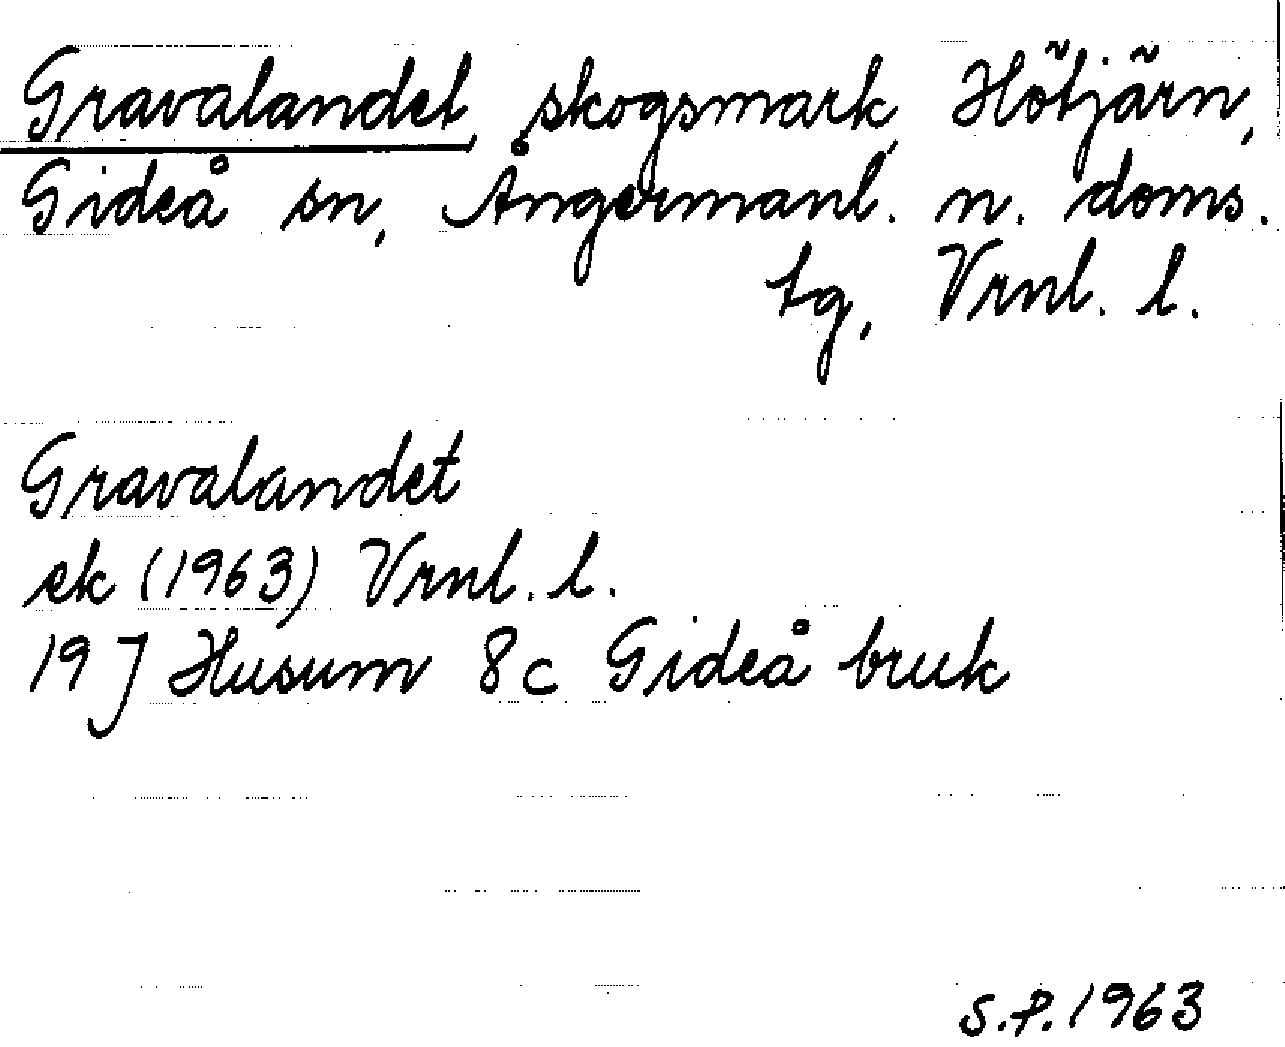 Gravalandet, skogsmark, Hötjärn,
Gideå sn, Ångermanl. n. doms.
tg, Vrnl. l.
Gravalandet
ek (1963) Vrnl. l.
19 J Husum 8c Gideå bruk
S.P. 1963